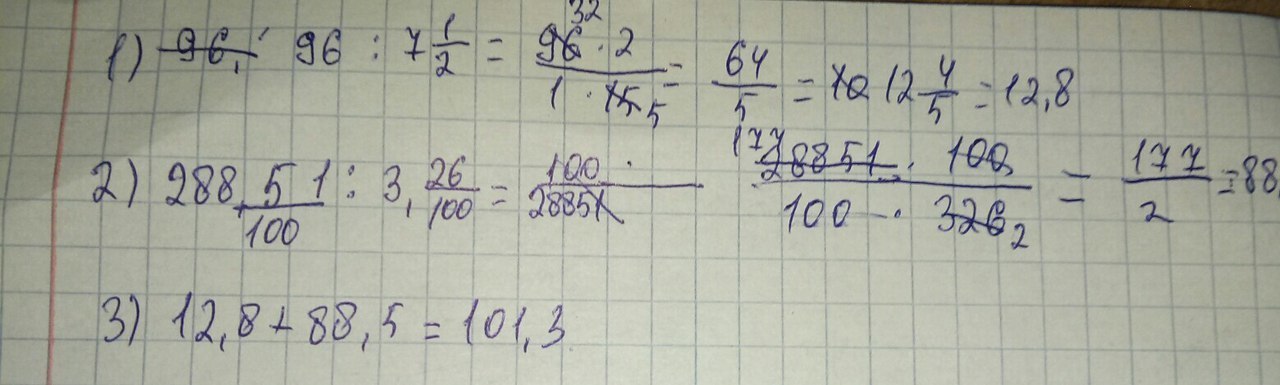 1) 96 : 7 1/2 = 96 · 2 / 1 · 15 = 64/5 = 12 4/5 = 12,8
2) 288 51/100 : 3, 26/100 = 100 · / 28851 28851 · 100 / 100 · 326 = 177/2 = 88,
3) 12,8 + 88,5 = 101,3